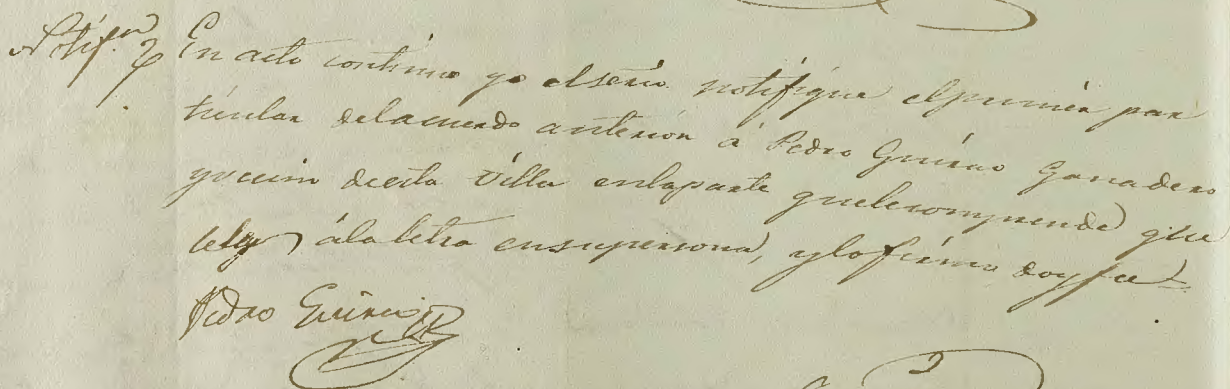 Notif.on En acto continuo yo el Serio. notifique el primer par
ticular del acuerdo anterior á Pedro Ganadero
y vecino de esta Villa en la parte que le comprende que
leí á la letra en su persona, y lo firma doy fe
Pedro